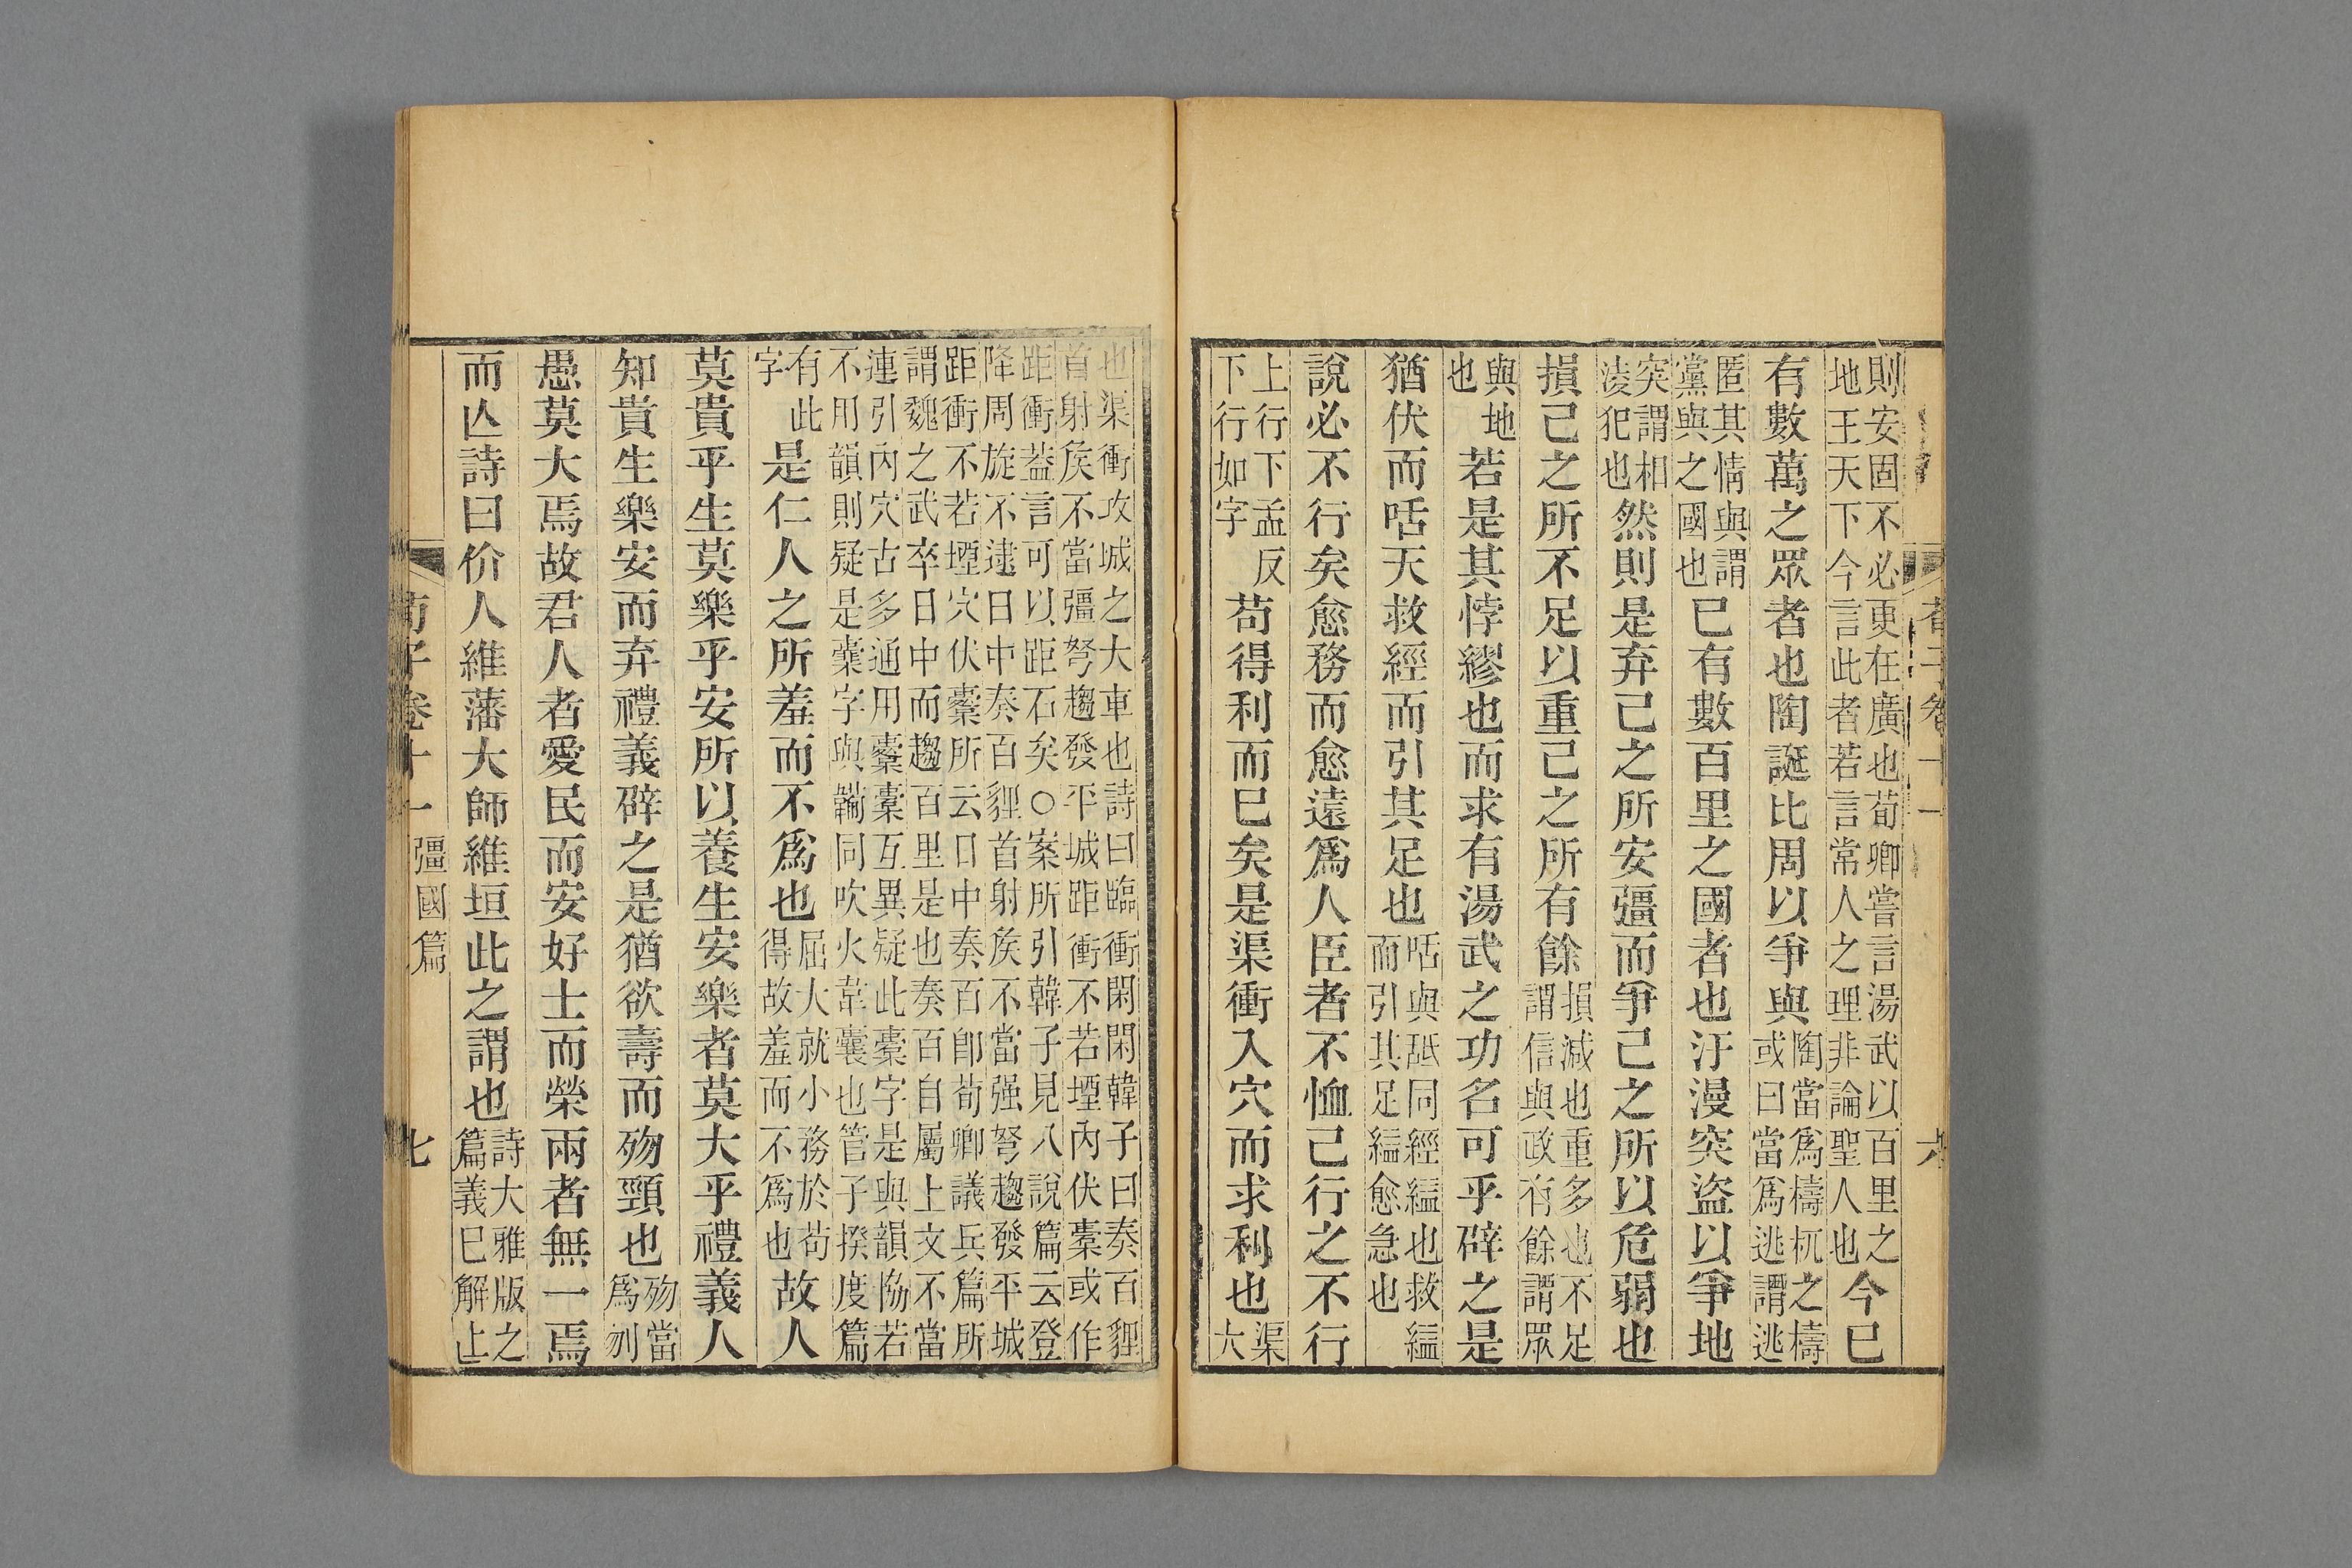 荀子卷十一 六
則安固不必更在廣也荀卿嘗言湯武以百里之地王天下今言此者若言常人之理非論聖人也今已
有數萬之眾者也陶誕比周以爭與陶當爲檮杌之檮或曰當爲逃謂逃
匿其情與謂黨與之國也已有數百里之國者也汙漫突盜以爭地
突謂相淩犯也然則是弃己之所安彊而爭己之所以危弱也
損己之所不足以重己之所有餘損減也重多也不足謂信與政有餘謂眾
與地也若是其悖繆也而求有湯武之功名可乎辟之是
猶伏而咶天救經而引其足也咶與舐同經縊也救縊而引其足縊愈急也
說必不行矣愈務而愈遠爲人臣者不恤己行之不行
上行下孟反下行如字苟得利而已矣是渠衝入穴而求利也渠大
也渠衝攻城之大車也詩曰臨衝閑閑韓子曰奏百貍首射矦不當彊弩趨發平城距衝不若堙內伏櫜或作
距衝葢言可以距石矣○案所引韓子見八說篇云登降周旋不逮日中奏百貍首射矦不當强弩趨發平城
距衝不若堙穴伏櫜所云日中奏百卽荀卿議兵篇所謂魏之武卒日中而趨百里是也奏百自屬上文不當
連引內穴古多通用櫜橐互異疑此橐字是與韻協若不用韻則疑是櫜字與韛同吹火韋囊也管子揆度篇
有此字是仁人之所羞而不爲也屈大就小務於苟得故羞而不爲也故人
莫貴乎生莫樂乎安所以養生安樂者莫大乎禮義人
知貴生樂安而弃禮義辟之是猶欲壽而歾頸也歾當爲刎
愚莫大焉故君人者愛民而安好士而榮兩者無一焉
而亾詩曰价人維藩大師維垣此之謂也詩大雅版之篇義已解上
荀子卷十一 彊國篇 七